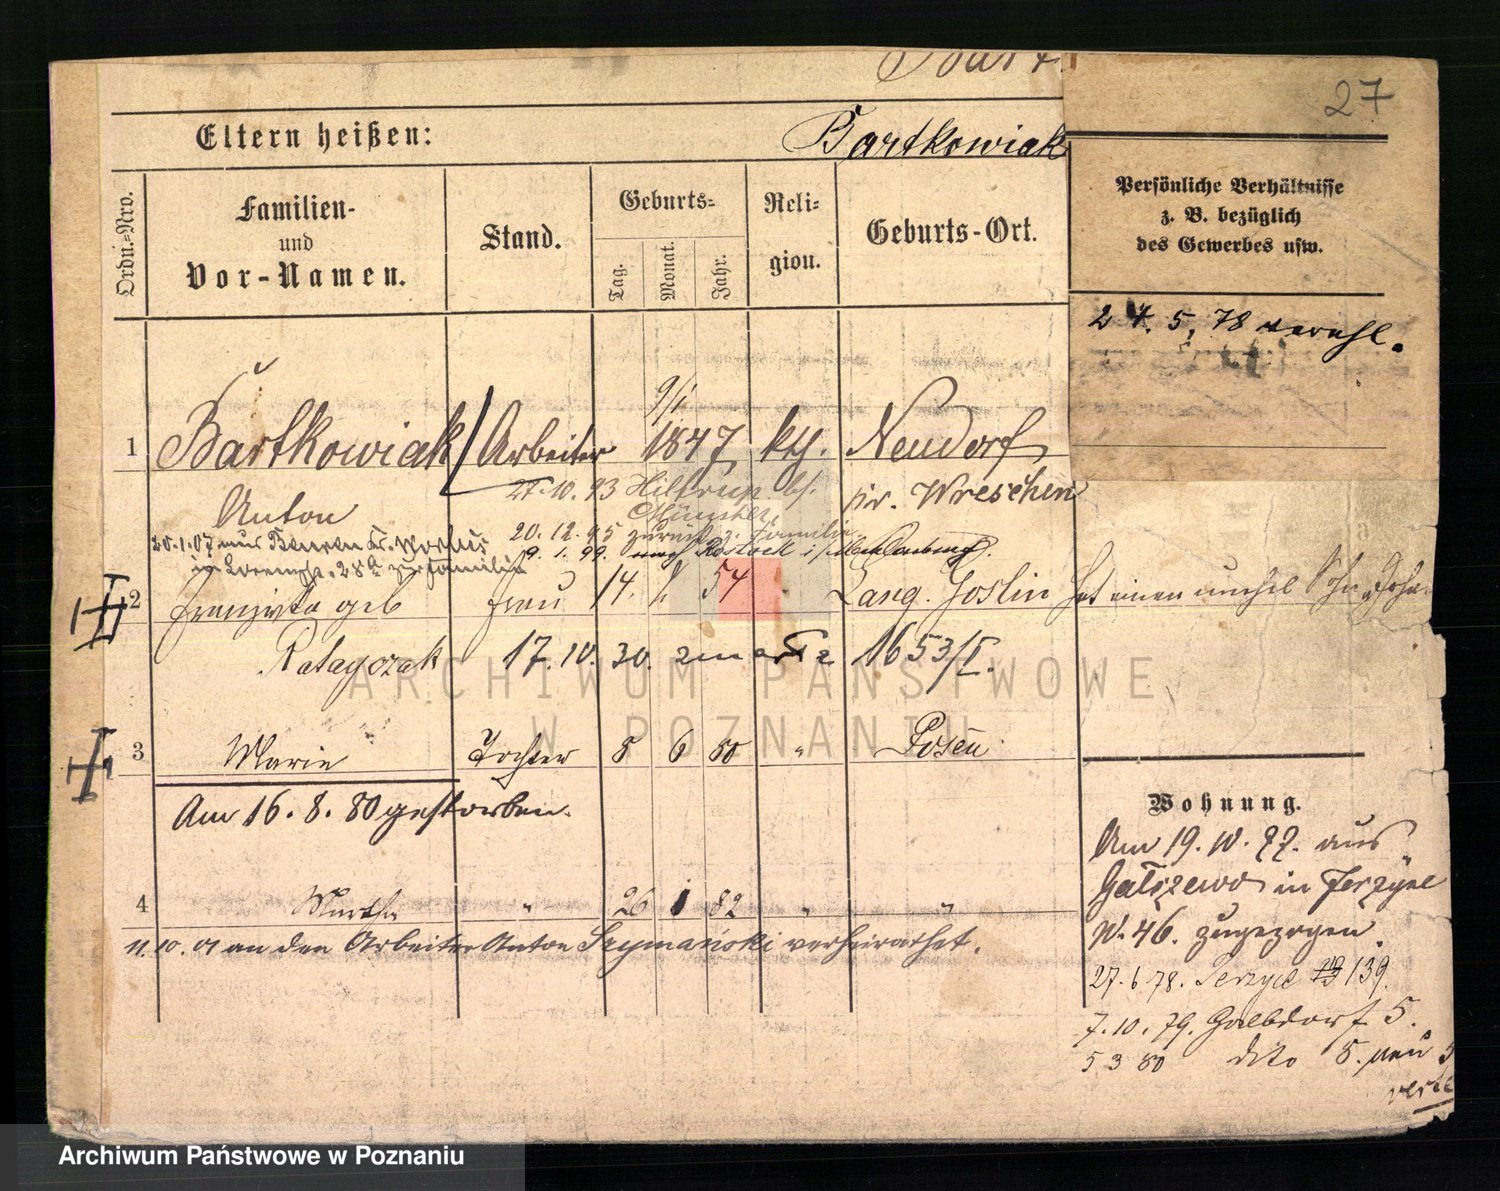 27
Eltern heißen:
Bartkowiak
Ordn.-Nro.
Familien-
und
Vor-Namen.
Stand.
Geburts-
Tag.
Monat.
Jahr.
Reli-
gion.
Geburts-Ort.
Persönliche Verhältnisse
z. B. bezüglich
des Gewerbes usw.
24. 5. 78 verehl.
9/1
1 Bartkowiak Arbeiter 1847 kth. Neudorf
Anton 27.10.93 Hiltrup b/. kr. Wreschen
Münster
20.12.95 zurück z. Familie
9. 1. 99. nach Rostock i/
20.1.07 aus
zur Familie
2 Franziska geb Frau 14. 54 Lang. Goslin hat einen unehl Sohn
Ratayczak 17.10.30. 1653/I.
3 Marie Tochter 8 6 80 " Posen
Am 16. 8. 80 gestorben.
4 Martha " 26 1 82 " "
11.10.01 an den Arbeiter Anton Szymański verheirathet.
Wohnung.
Am 19. 10. 77. aus
in Jerzyce
N. 46. zugezogen.
27. 6 78. Jerzyce 139.
7. 10. 79. 5.
5 3 80 dito 8. neu
ARCHIWUM PAŃSTWOWE
W POZNANIU
Archiwum Państwowe w Poznaniu